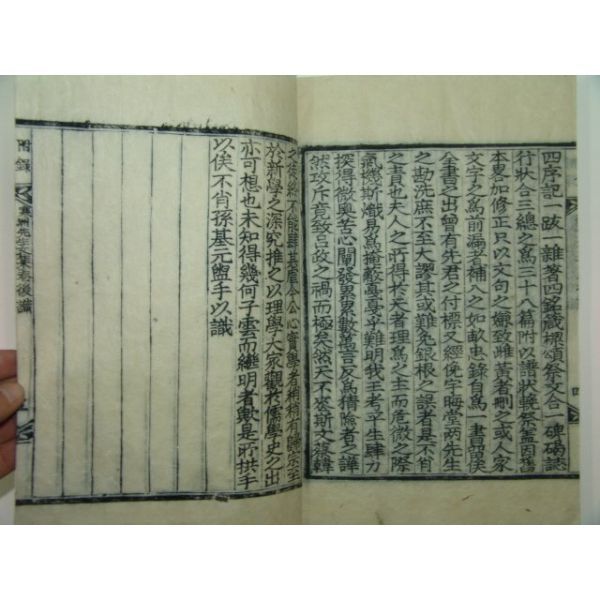 四序記一跋一雜著四銘箴楔頌祭文合一碑碣誌
行狀合三總之爲三十八篇附以譜狀輓祭盖因舊
本畧加修正只以文句之嫌致雌黃者刪之或人家
文字之爲前漏者補入之如畝忠錄自爲一書留俟
全書之出曾有先君之付標又經俛宇晦堂两先生
之勘洗庶不至大謬其或難免銀根之誤者是不肖
之責也夫人之所得於天者理爲之主而危微之際
氣機斯熾易爲掩蔽戞戞乎難明我王考平生肆力
探得微奧苦心闡發累累數萬言反爲猜險者之譁
然攻斥竟致呂政之禍而極矣然天不喪斯文蔡韓
之後終不能肆其虐今公心實學者稍稍有歸宗至
於新學之深究推之以理學大家觀於儒學史之出
亦可想也未知得幾何子雲而繼明者歟是所拱手
以俟不肖孫基元盥手以識
附錄
先生文集卷後識
四